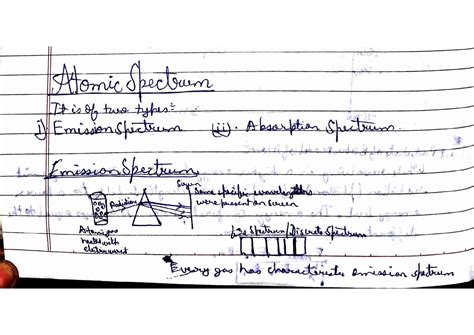 Atomic Spectrum
It is of two types:-
i) Emission Spectrum (ii). Absorption Spectrum.
Emission Spectrum
Screen
Radiation
Some specific wavelengths
were present on screen
Atomic gas
heated with
Line Spectrum/Discrete Spectrum
Every gas has characteristic emission spectrum